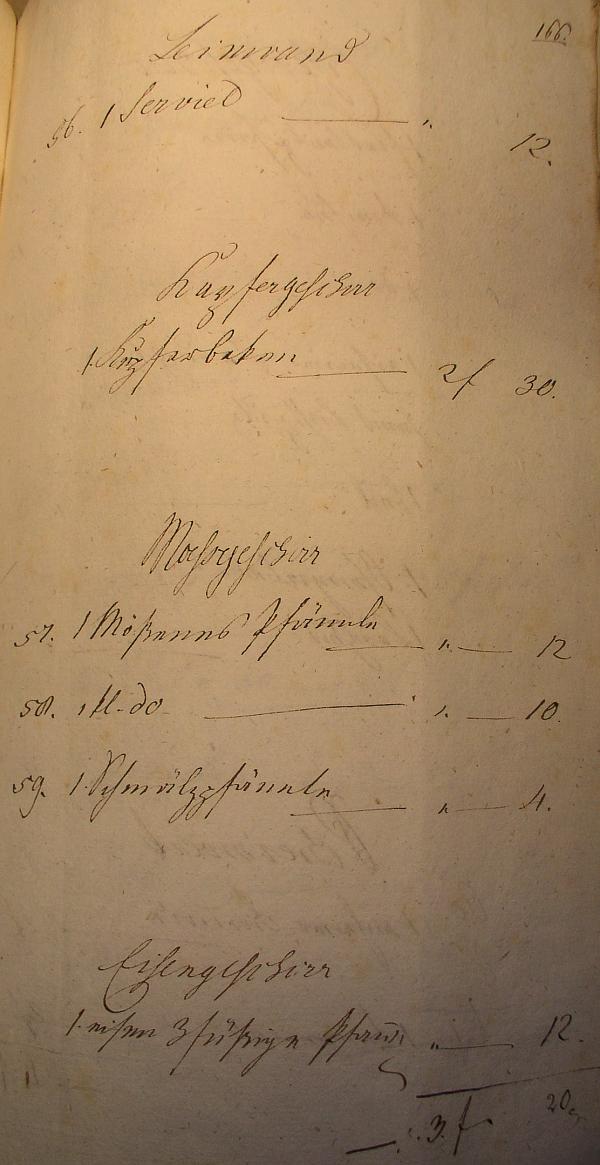 166.
Leinwand
56. 1 Serviet " 12.
Kupfergeschirr
1. Kupferbeken 2 f 30.
Moßgeschirr
57. 1 Mößenes Pfännle " 12
58. 1 kl. do " 10.
59. 1 Schmälzpfännle " 4.
Eisengeschirr
1. eisen 3füßige Pfann " 12.
3. f 20